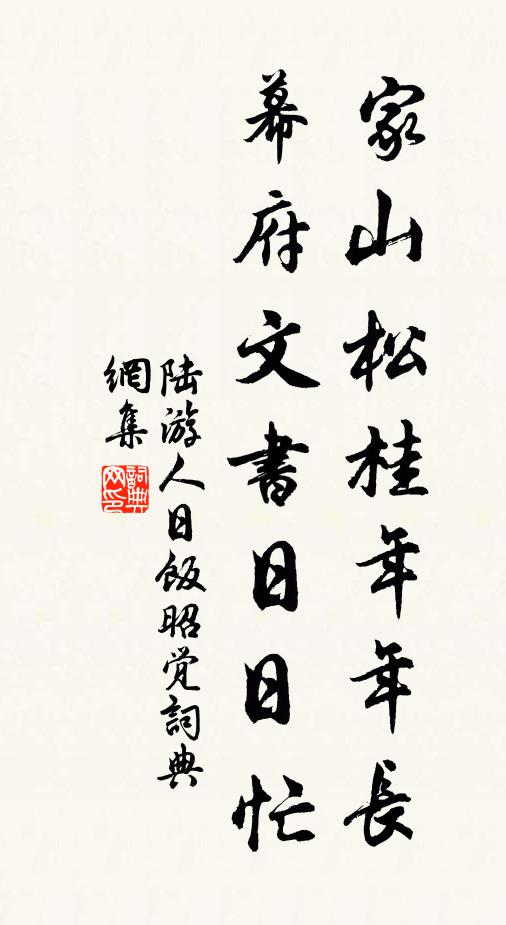 家山松桂年年長
幕府文書日日忙
陆游人日飯昭覚詞典
網集
詞典網印